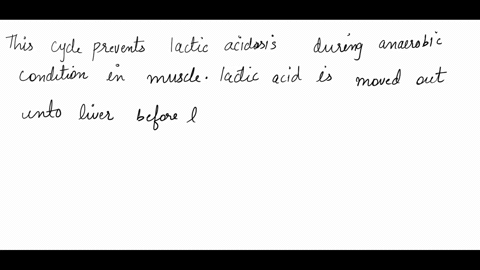 This cycle prevents lactic acidosis during anaerobic
condition in muscle. lactic acid is moved out
unto liver before l